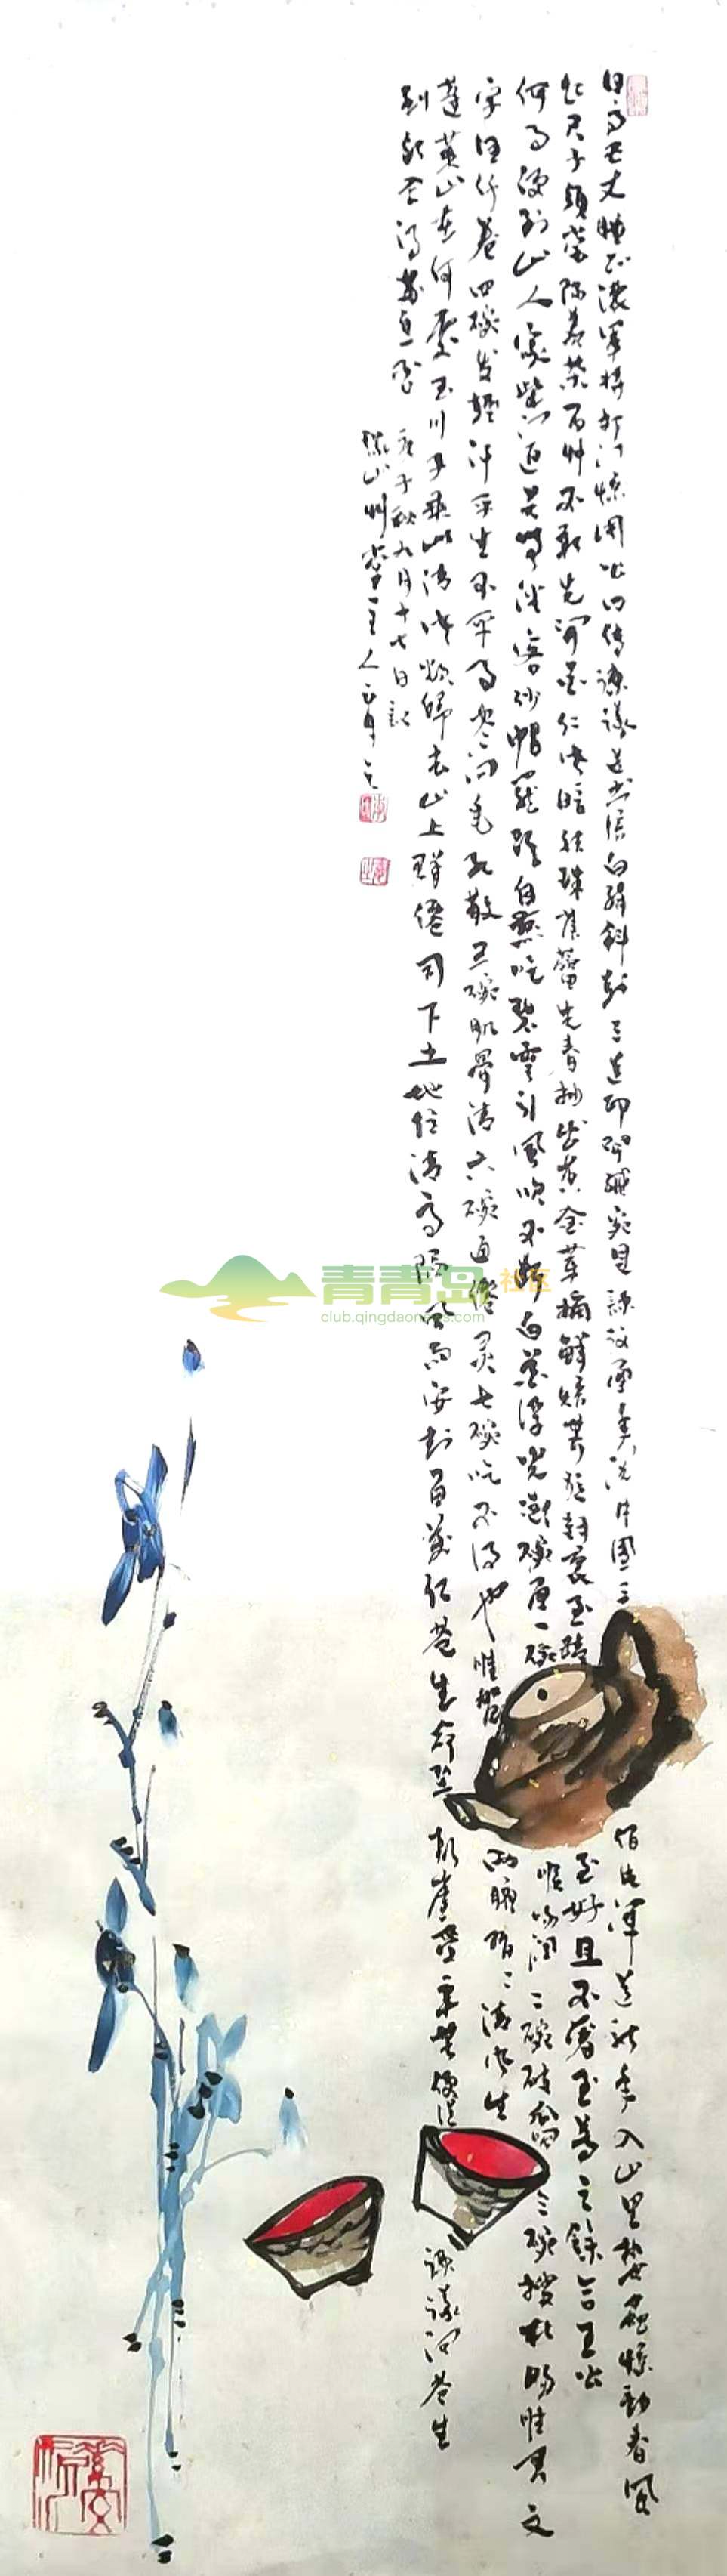 日高五丈睡正濃军将打门惊周公口传谏议送书信白绢斜封三道印開緘宛見谏议面手阅月團三佰片闻道新年入山里蛰蟲惊动春风
起天子須尝阳羡茶百草不敢先开花仁风暗结珠蓓蕾先春抽出黄金芽摘鲜焙芳旋封裹至精至好且不奢至尊之餘合王公
何事便到山人家柴门反关无俗客纱帽笼头自煎吃碧雲引風吹不断白花浮光凝碗面一碗喉吻润二碗破孤闷三碗搜枯肠惟有文
字五千卷四碗发轻汗平生不平事尽向毛孔散五碗肌骨清六碗通僊灵七碗吃不得也惟覺两腋習習清风生
蓬莱山在何處玉川子乘此清风欲归去山上群僊司下土地位清高隔风雨安知百万亿苍生命坠颠崖受辛苦便從谏议问苍生
到头合得苏息否
庚子秋九月十七日记
主人
青青岛社区
club.qingdaonews.com